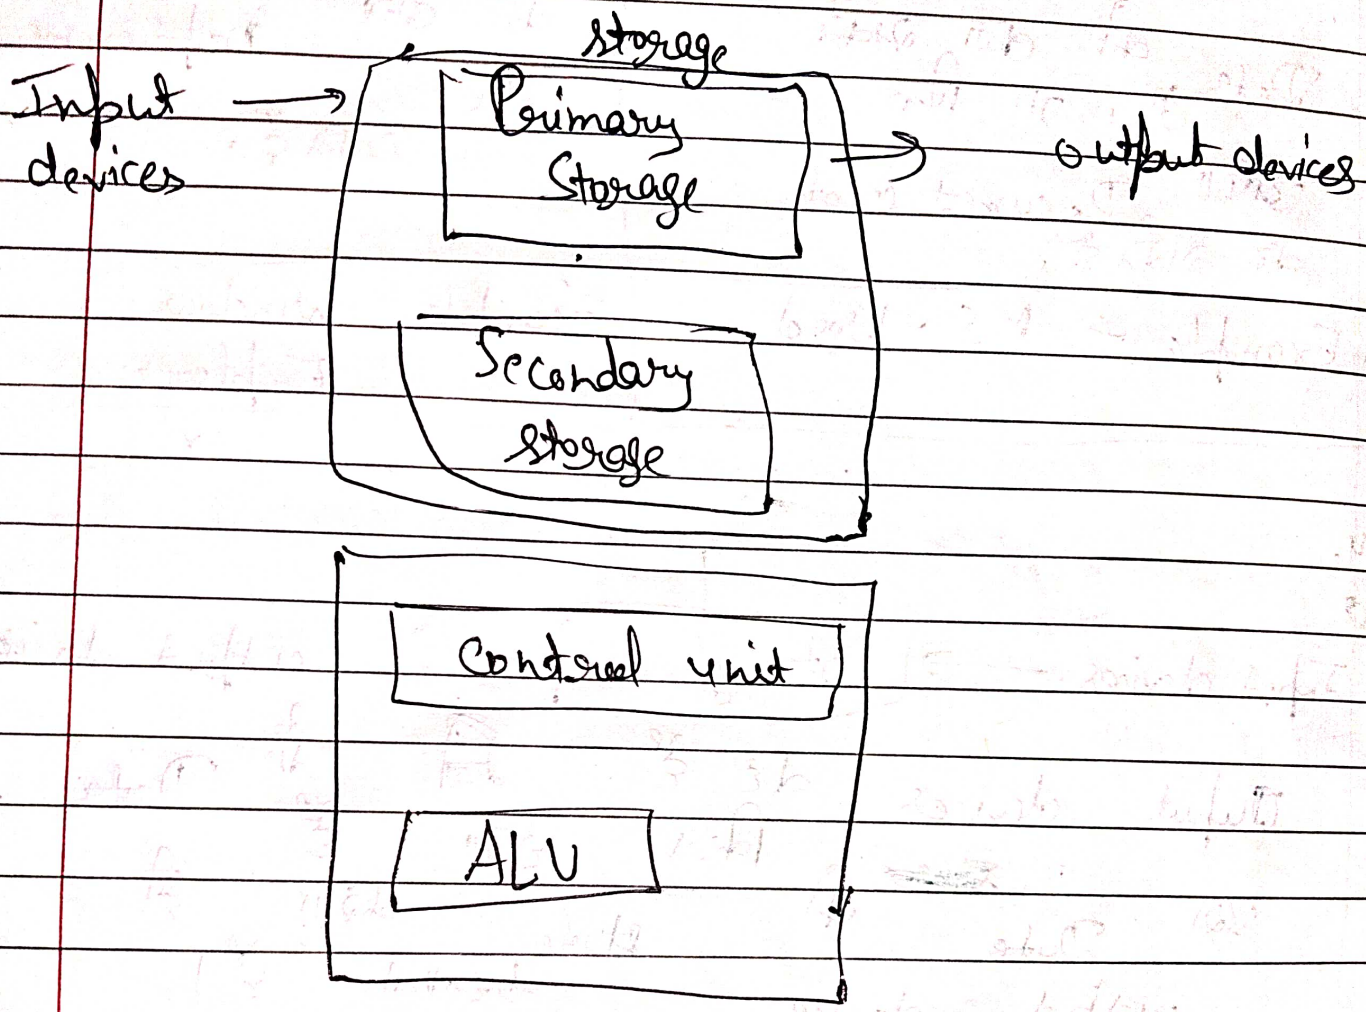 storage
Input
devices
Primary
Storage
output devices
Secondary
storage
Control unit
ALU